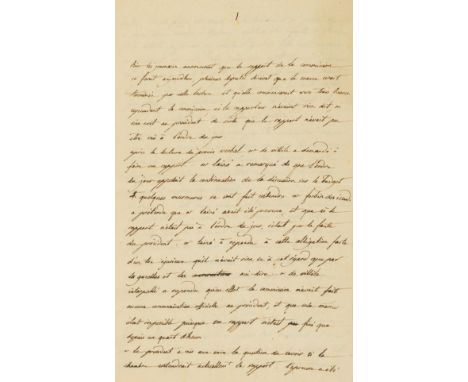 1
les journaux annoncent que le rapport de la commission
se ferait aujourd'hui, plusieurs députés disent que la séance serait
terminée par cette lecture et qu'elle commencerait
cependant la commission ni le rapporteur n'avaient rien dit ni
rien écrit au président de sorte que le rapport n'avait pu
être mis à l'ordre du jour
après la lecture du procès verbal m de villèle a demandé à
faire un rapport. m lainé a remarqué que l'ordre
du jour appelait la continuation de la discussion sur le Budget
quelques murmures se sont fait entendre m
a prétendu que m lainé avait été prévenu et que si le
rapport n'était pas à l'ordre du jour, c'était par la faute
du président. m lainé a répondu à cette allégation
qu'il n'avait rien su à cet égard que par
la gazette et les m de villèle
interpellé a répondu qu'en effet la commission n'avait fait
aucune communication officielle au président, et que cela même
était impossible puisque son rapport n'était fini que
depuis un quart d'heure
m le président a mis aux voix la question de savoir si la
chambre entendrait actuellement le rapport. l'épreuve a été